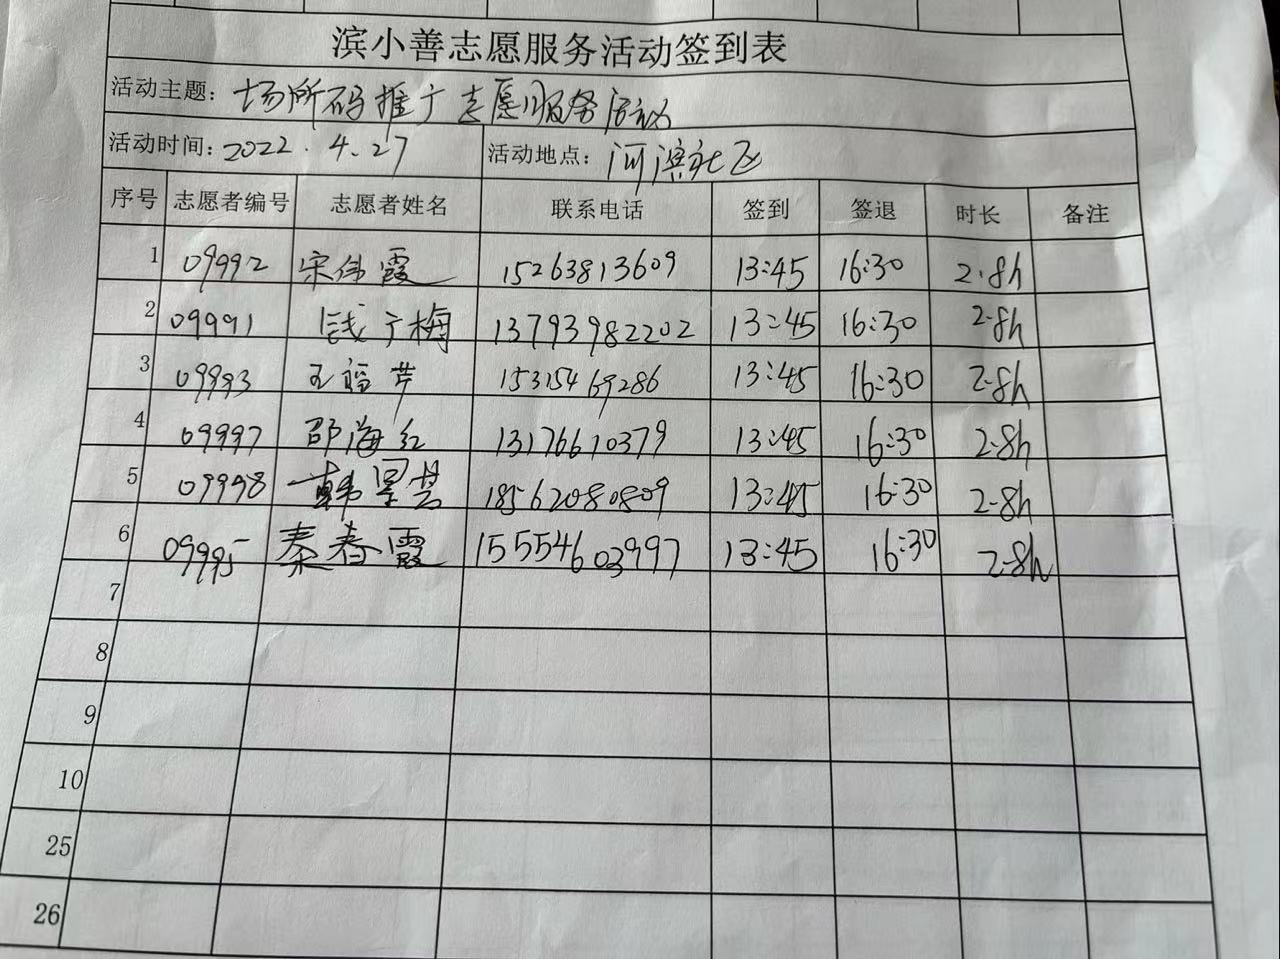 滨小善志愿服务活动签到表
活动主题：场所码推广志愿服务活动
活动时间：2022.4.27 活动地点：河滨社区
序号 志愿者编号 志愿者姓名 联系电话 签到 签退 时长 备注
1 09992 宋伟霞 15263813609 13:45 16:30 2.8h
2 09991 钱于梅 13793982202 13:45 16:30 2.8h
3 09993 王福芹 15315469286 13:45 16:30 2.8h
4 09997 邵海红 13176610379 13:45 16:30 2.8h
5 09998 韩景芸 18562080809 13:45 16:30 2.8h
6 09995 秦春霞 15554603997 13:45 16:30 2.8h
7
8
9
10
25
26